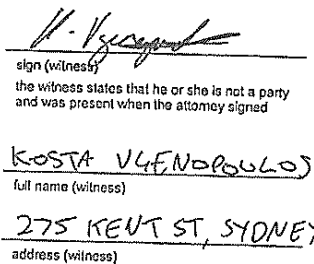 sign (witness)
the witness states that he or she is not a party
and was present when the attorney signed
KOSTA VGENOPOULOS
full name (witness)
275 KENT ST, SYDNEY
address (witness)